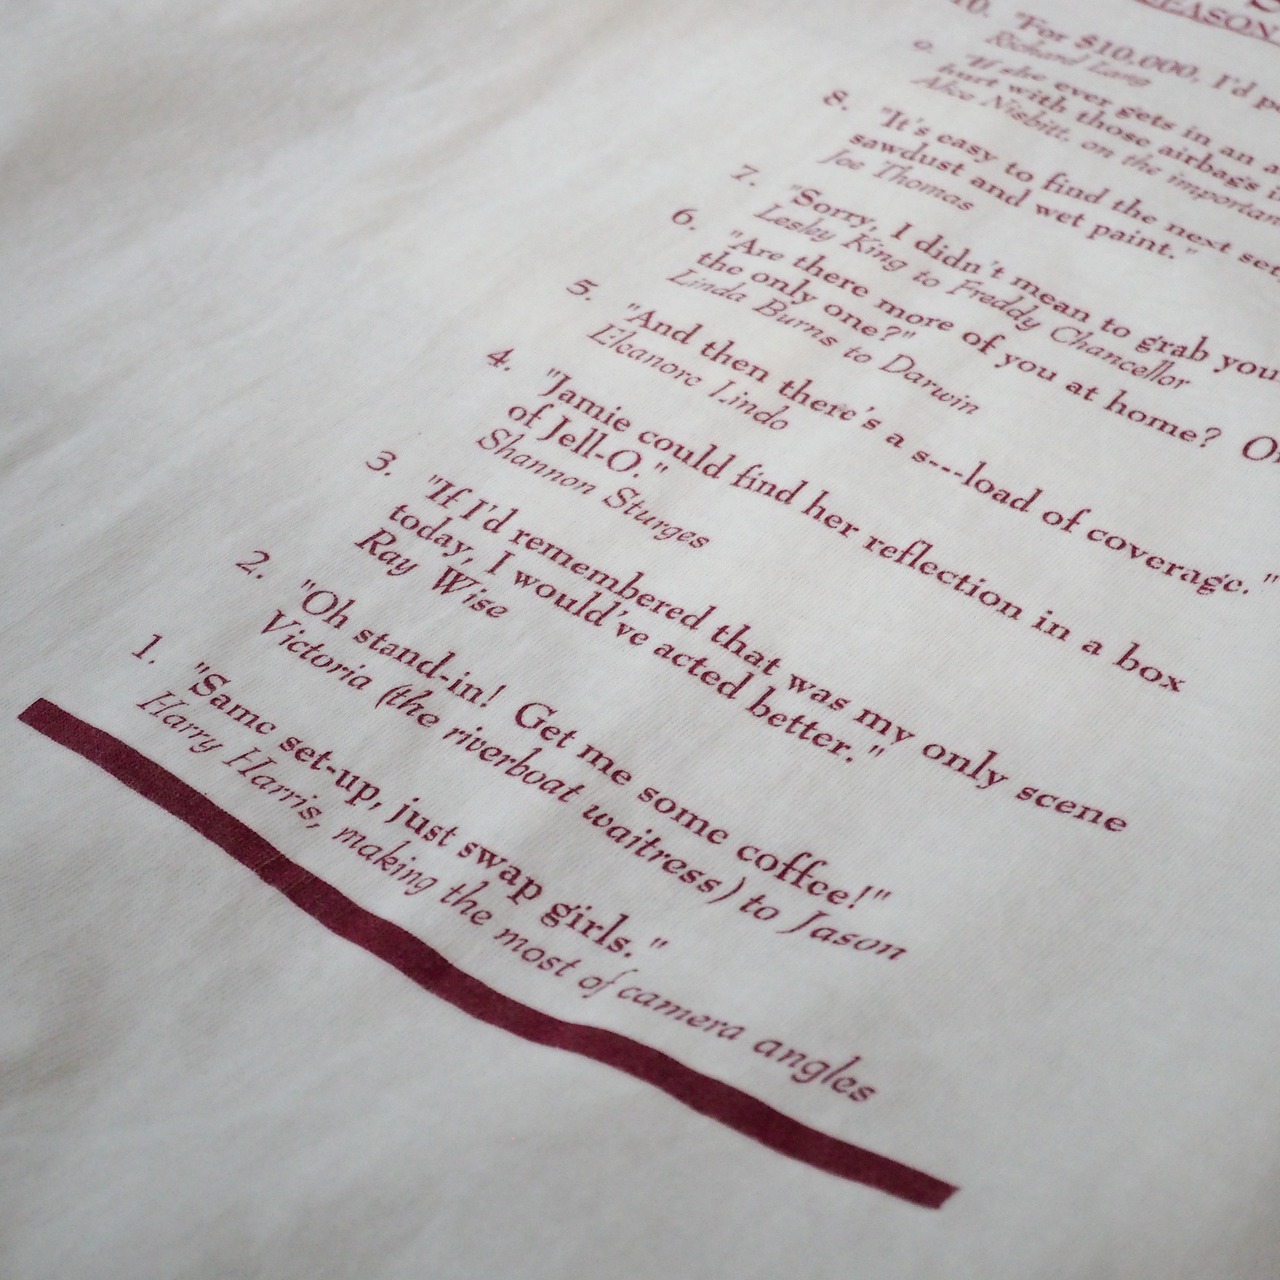 SEASON
10. "For $10,000, I'd
Richard Lang
9. "If she ever gets in an
hurt with those airbags
Alice Nisbitt, on the
8. "It's easy to find the next set
sawdust and wet paint."
Joe Thomas
7. "Sorry, I didn't mean to grab you
Lesky King to Freddy Chancellor
6. "Are there more of you at home?
the only one?"
Linda Burns to Darwin
5. "And then there's a s---load of coverage."
Eleanore Lindo
4. "Jamie could find her reflection in a box
of Jell-O."
Shannon Sturges
3. "If I'd remembered that was my only scene
today, I would've acted better."
Ray Wise
2. "Oh stand-in! Get me some coffee!"
Victoria (the riverboat waitress) to Jason
1. "Same set-up, just swap girls."
Harry Harris, making the most of camera angles